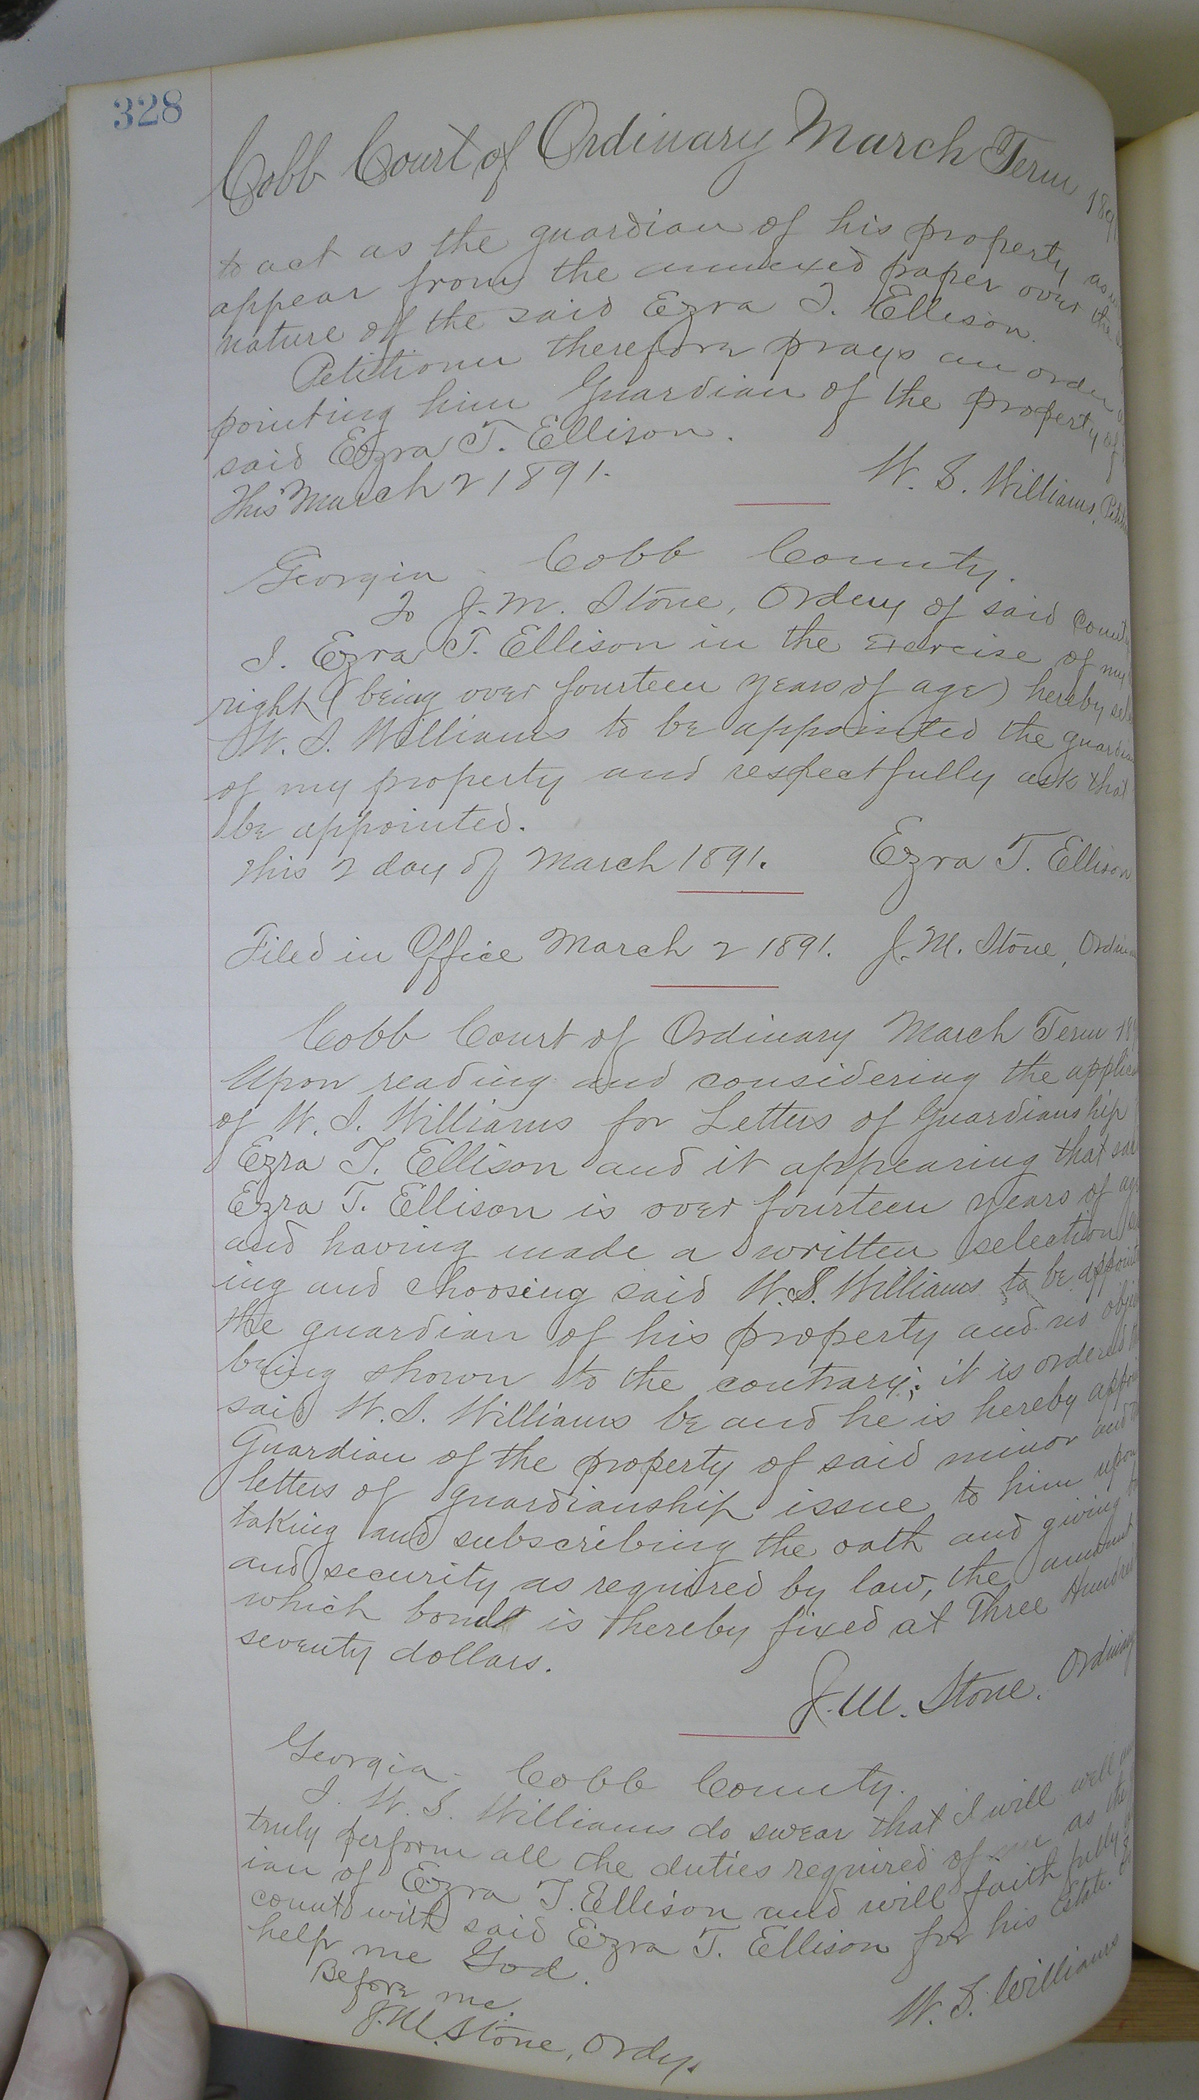 328
Cobb Court of Ordinary March Term 189
to act as the guardian of his property as
appear from the annexed paper over the
nature of the said Ezra T. Ellison.
Petitioner therefore prays an order
pointing him Guardian of the property of
said Ezra T. Ellison.
This March 2 1891.
W. S. Williams,
Georgia Cobb County.
To J. M. Stone, Ordny of said
I. Ezra T. Ellison in the Exercise of my
right (being over fourteen years of age) hereby
W. S. Williams to be appointed the
of my property and respectfully ask that
be appointed.
This 2 day of March 1891. Ezra T. Ellison
Filed in Office March 2 1891. J. M. Stone,
Cobb Court of Ordinary March Term 18
Upon reading and considering the
of W. S. Williams for Letters of Guardianship
Ezra T. Ellison and it appearing that
Ezra T. Ellison is over fourteen years of
and having made a written selection
ing and choosing said W. S. Williams to be
the guardian of his property and no
being shown to the contrary; it is ordered
said W. S. Williams be and he is hereby
Guardian of the property of said minor and
letters of guardianship issue to him upon
taking and subscribing the oath and giving
and security as required by law, the amount
which bond is hereby fixed at Three
seventy dollars.
J. M. Stone. Ordinary
Georgia Cobb County.
I. W. S. Williams do swear that I will well
truly perform all the duties required of me as the
ian of Ezra T. Ellison and will faithfully
count with said Ezra T. Ellison for his Estate.
help me God.
Before me.
W. S. Williams
J. M. Stone, Ordy.